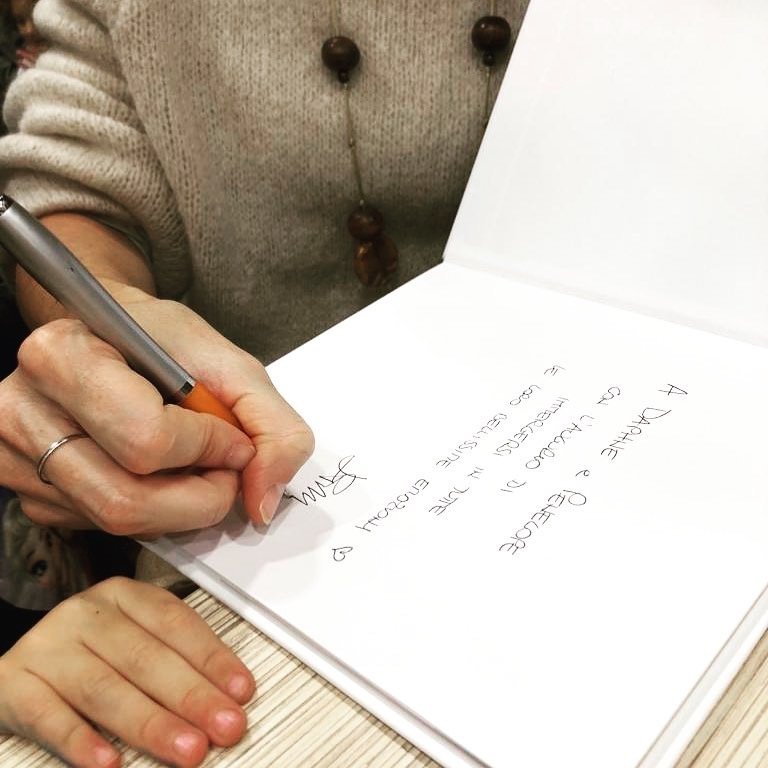 A DAPHNE e PENELOPE
CON L'AUGURIO DI
IMMERGERSI IN TUTTE
LE LORO BELLISSIME EMOZIONI ♡